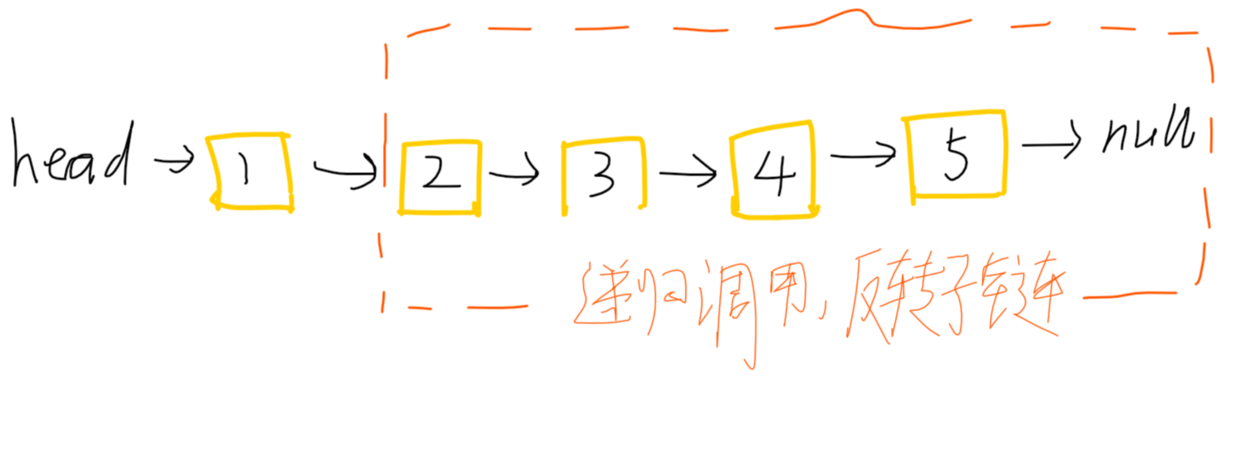 head → 1 → 2 → 3 → 4 → 5 → null
递归调用，反转子链